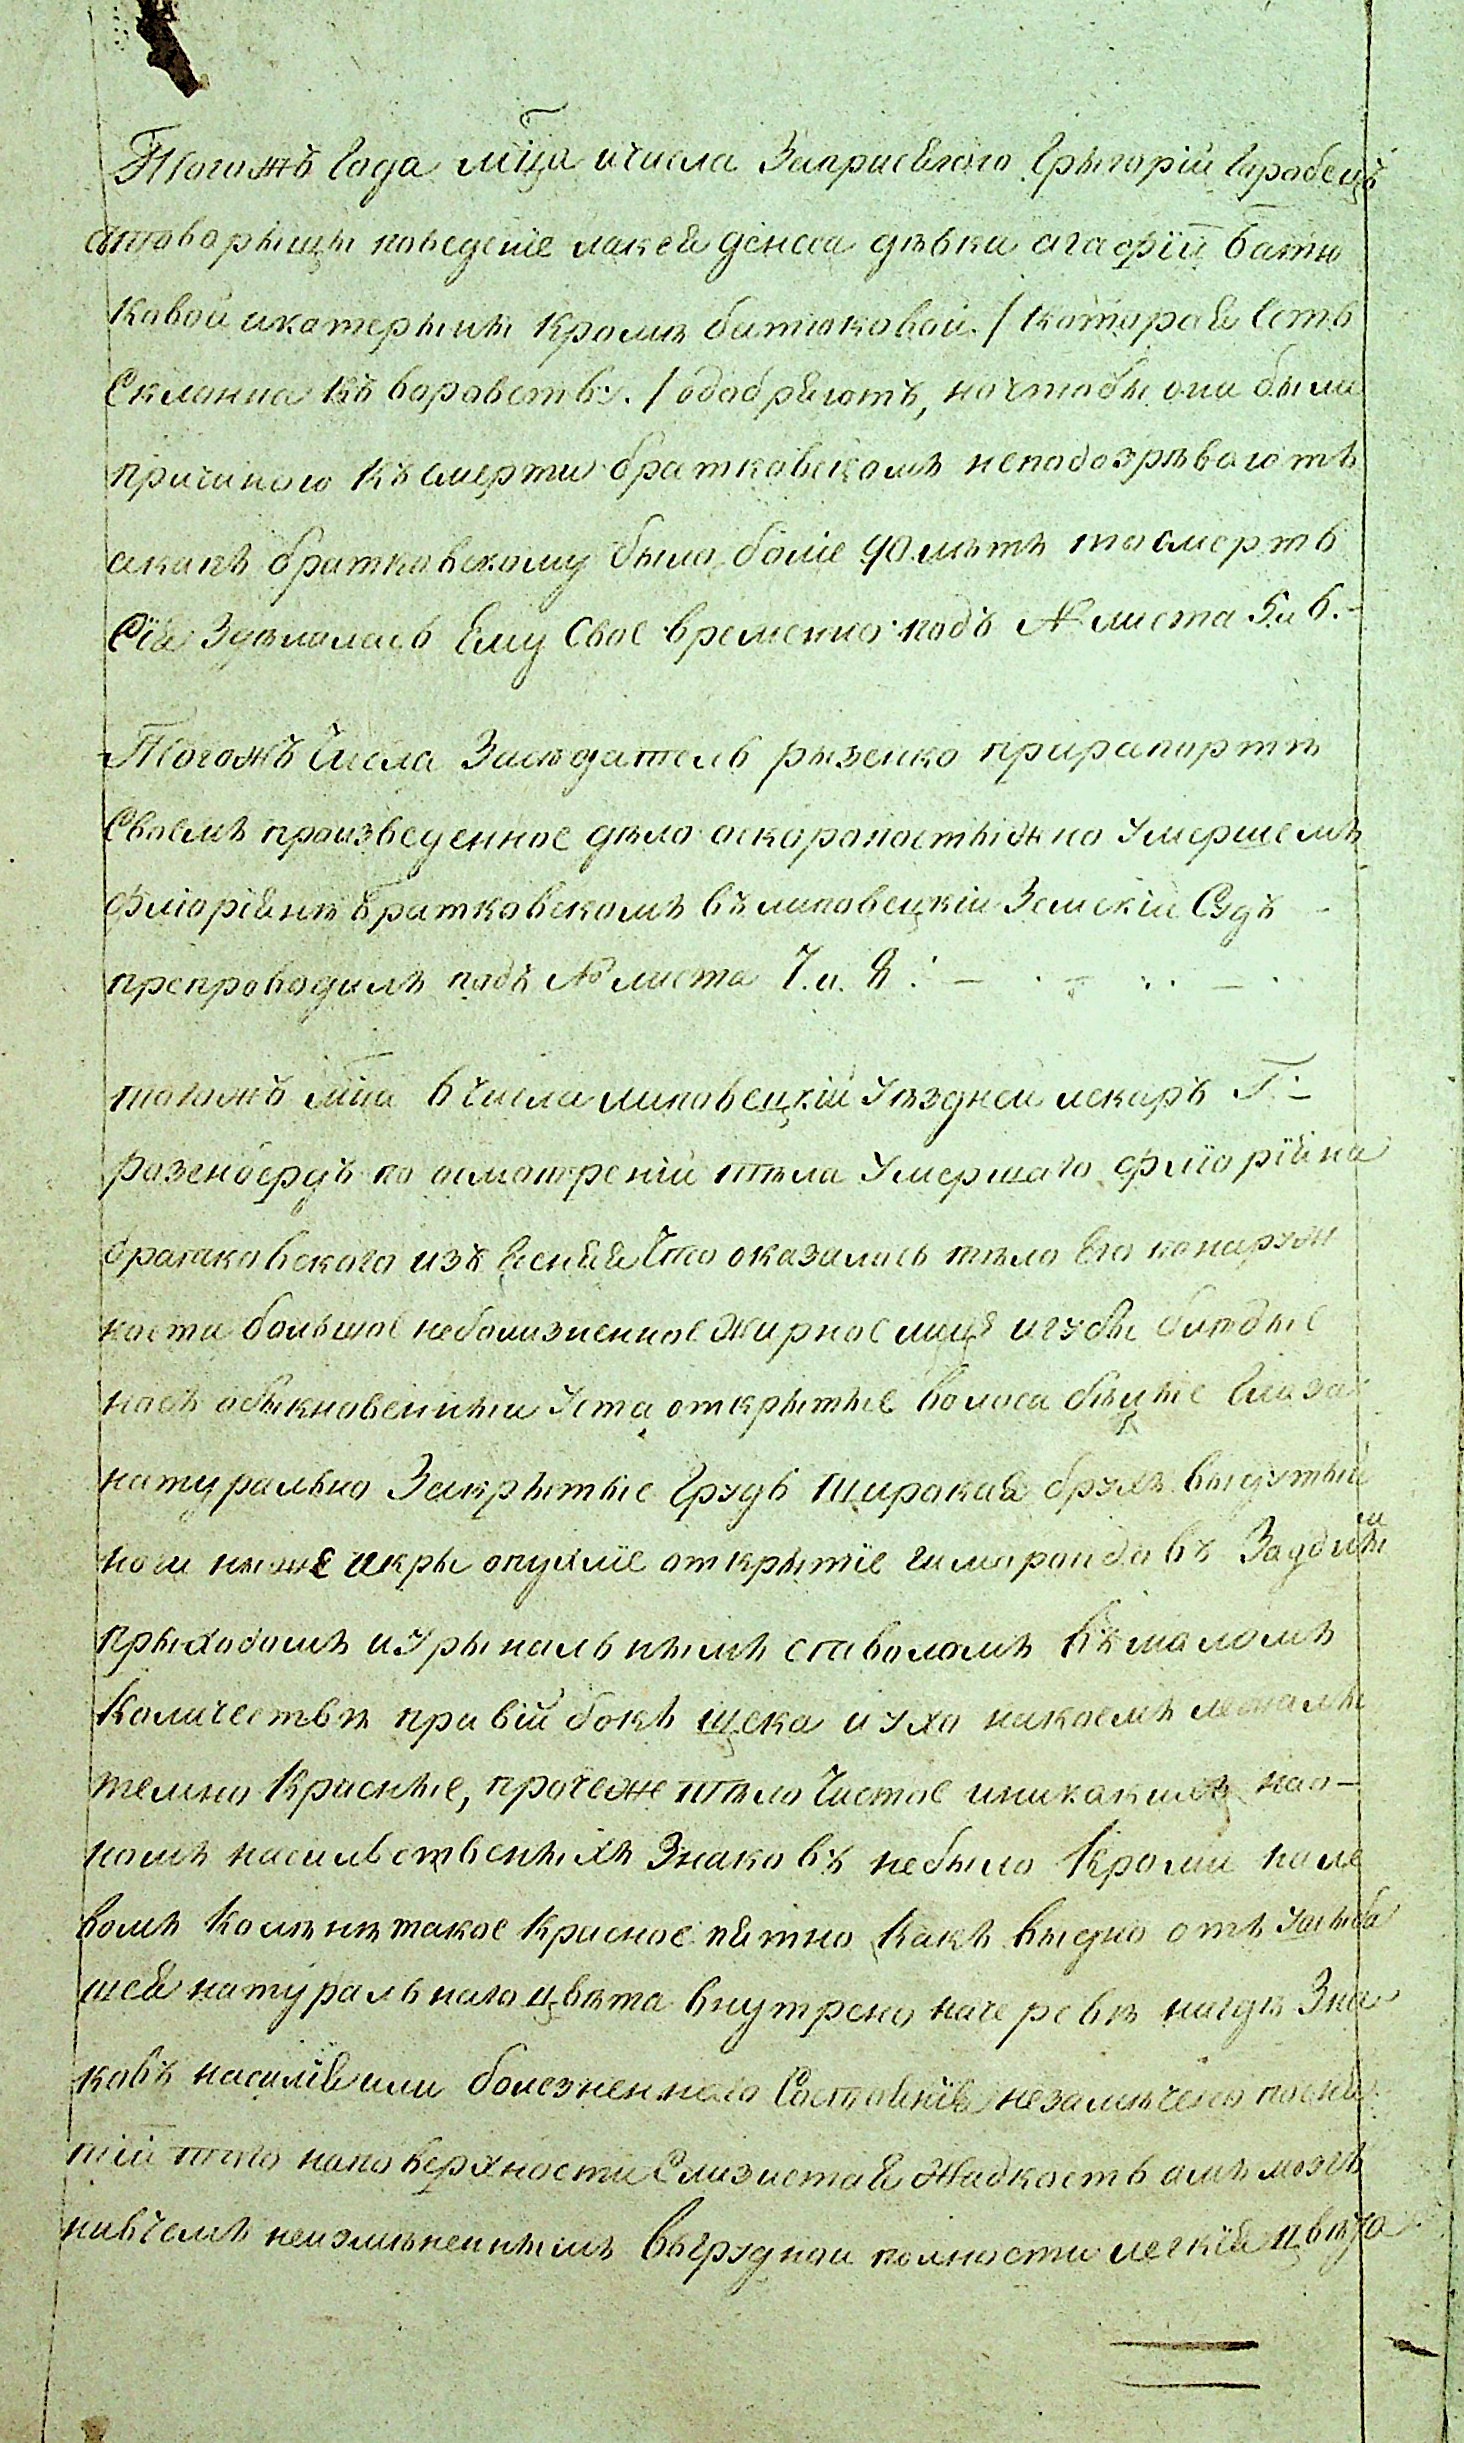 Тогожъ года мца ичисла Заприсѣгою Грыгорій Горобецъ
стоворыщы поведеніе лакея Дениса дѣвки агафіи Батю
ковой икатерыны Кромѣ батюковой / которая есть
Склонна къ воровству / одобряютъ, но чтобы они были
причиною къ смерти братковскомъ неподозрѣваютъ
акакъ братковскому было боліе 90 лѣтъ то смерть
Сія Здѣлалась Ему Свое временно подъ № листа 5 и 6.-
Тогожъ Числа Засѣдатель рызенко прирапортѣ
Своемъ произведенное дѣло оскоропостыжно Умершемъ
Фліоріянѣ братковскомъ въ липовецкій Земскій Судъ
препроводилъ подъ № листа 7. и. 8 :
тогожъ мца 6 Числа липовецкій Уѣздней лекаръ Г:
розенбердъ по осмотреніи тѣла Умершаго Фліоріяна
братковского изъ Что оказалось тѣло Его понаруж
ности большое неболизненное жирное лице игубы блѣдые
носъ обыкновенный Уста открытые волоса глаза
натурально Закрытые Грудь широкая брухъ выдутый
ноги ныже икры опухліе открытіе гимороида въ Заднымъ
прыходомъ иУрынальнымъ стволомъ въ маломъ
Количествѣ правій бокъ щека и ухо накоемъ лежалъ
темно Красные, протчеже тѣло Чистое иникакихъ нао-
номъ насильственыхъ Знаковъ небыло Кроми на ле
вомъ Колѣнѣ такое Красное пятно какъ выдно отъ Ушыба
шея натуральнаго цвѣта внутрено начеревѣ нигдѣ Зна
ковъ насилія или болезненнаго Состоянія незамѣчено посня
тіи того наповерхности Слизистая Жидкость амъ мозгъ
нивчемъ неизмѣненнымъ въгрудной полности легкія цвѣта